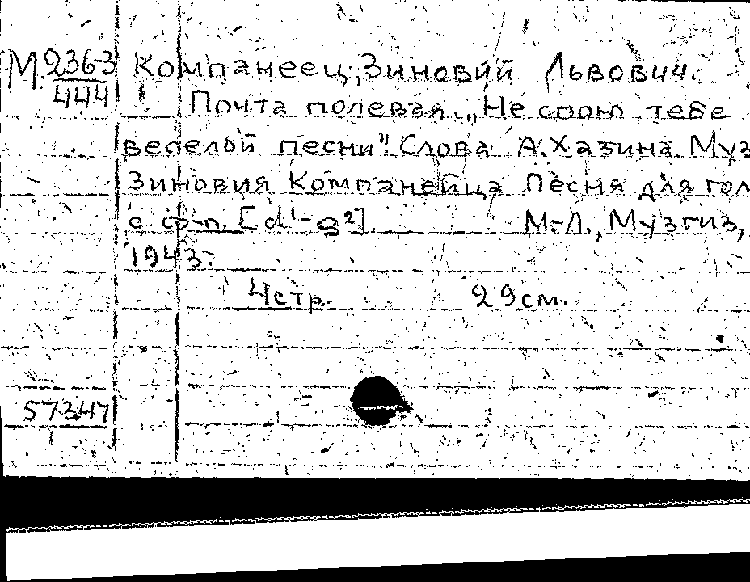 М 2363 Компанеец, Зиновий Львович.
444 Почта полевая. „Не спою тебе
веселой песни". Слова А. Хазина. Муз
Зиновия Компанейца Песня для гол
с ф-п. [d¹-g²] М-Л., Музгиз,
1943.
4стр. 29см.
57347